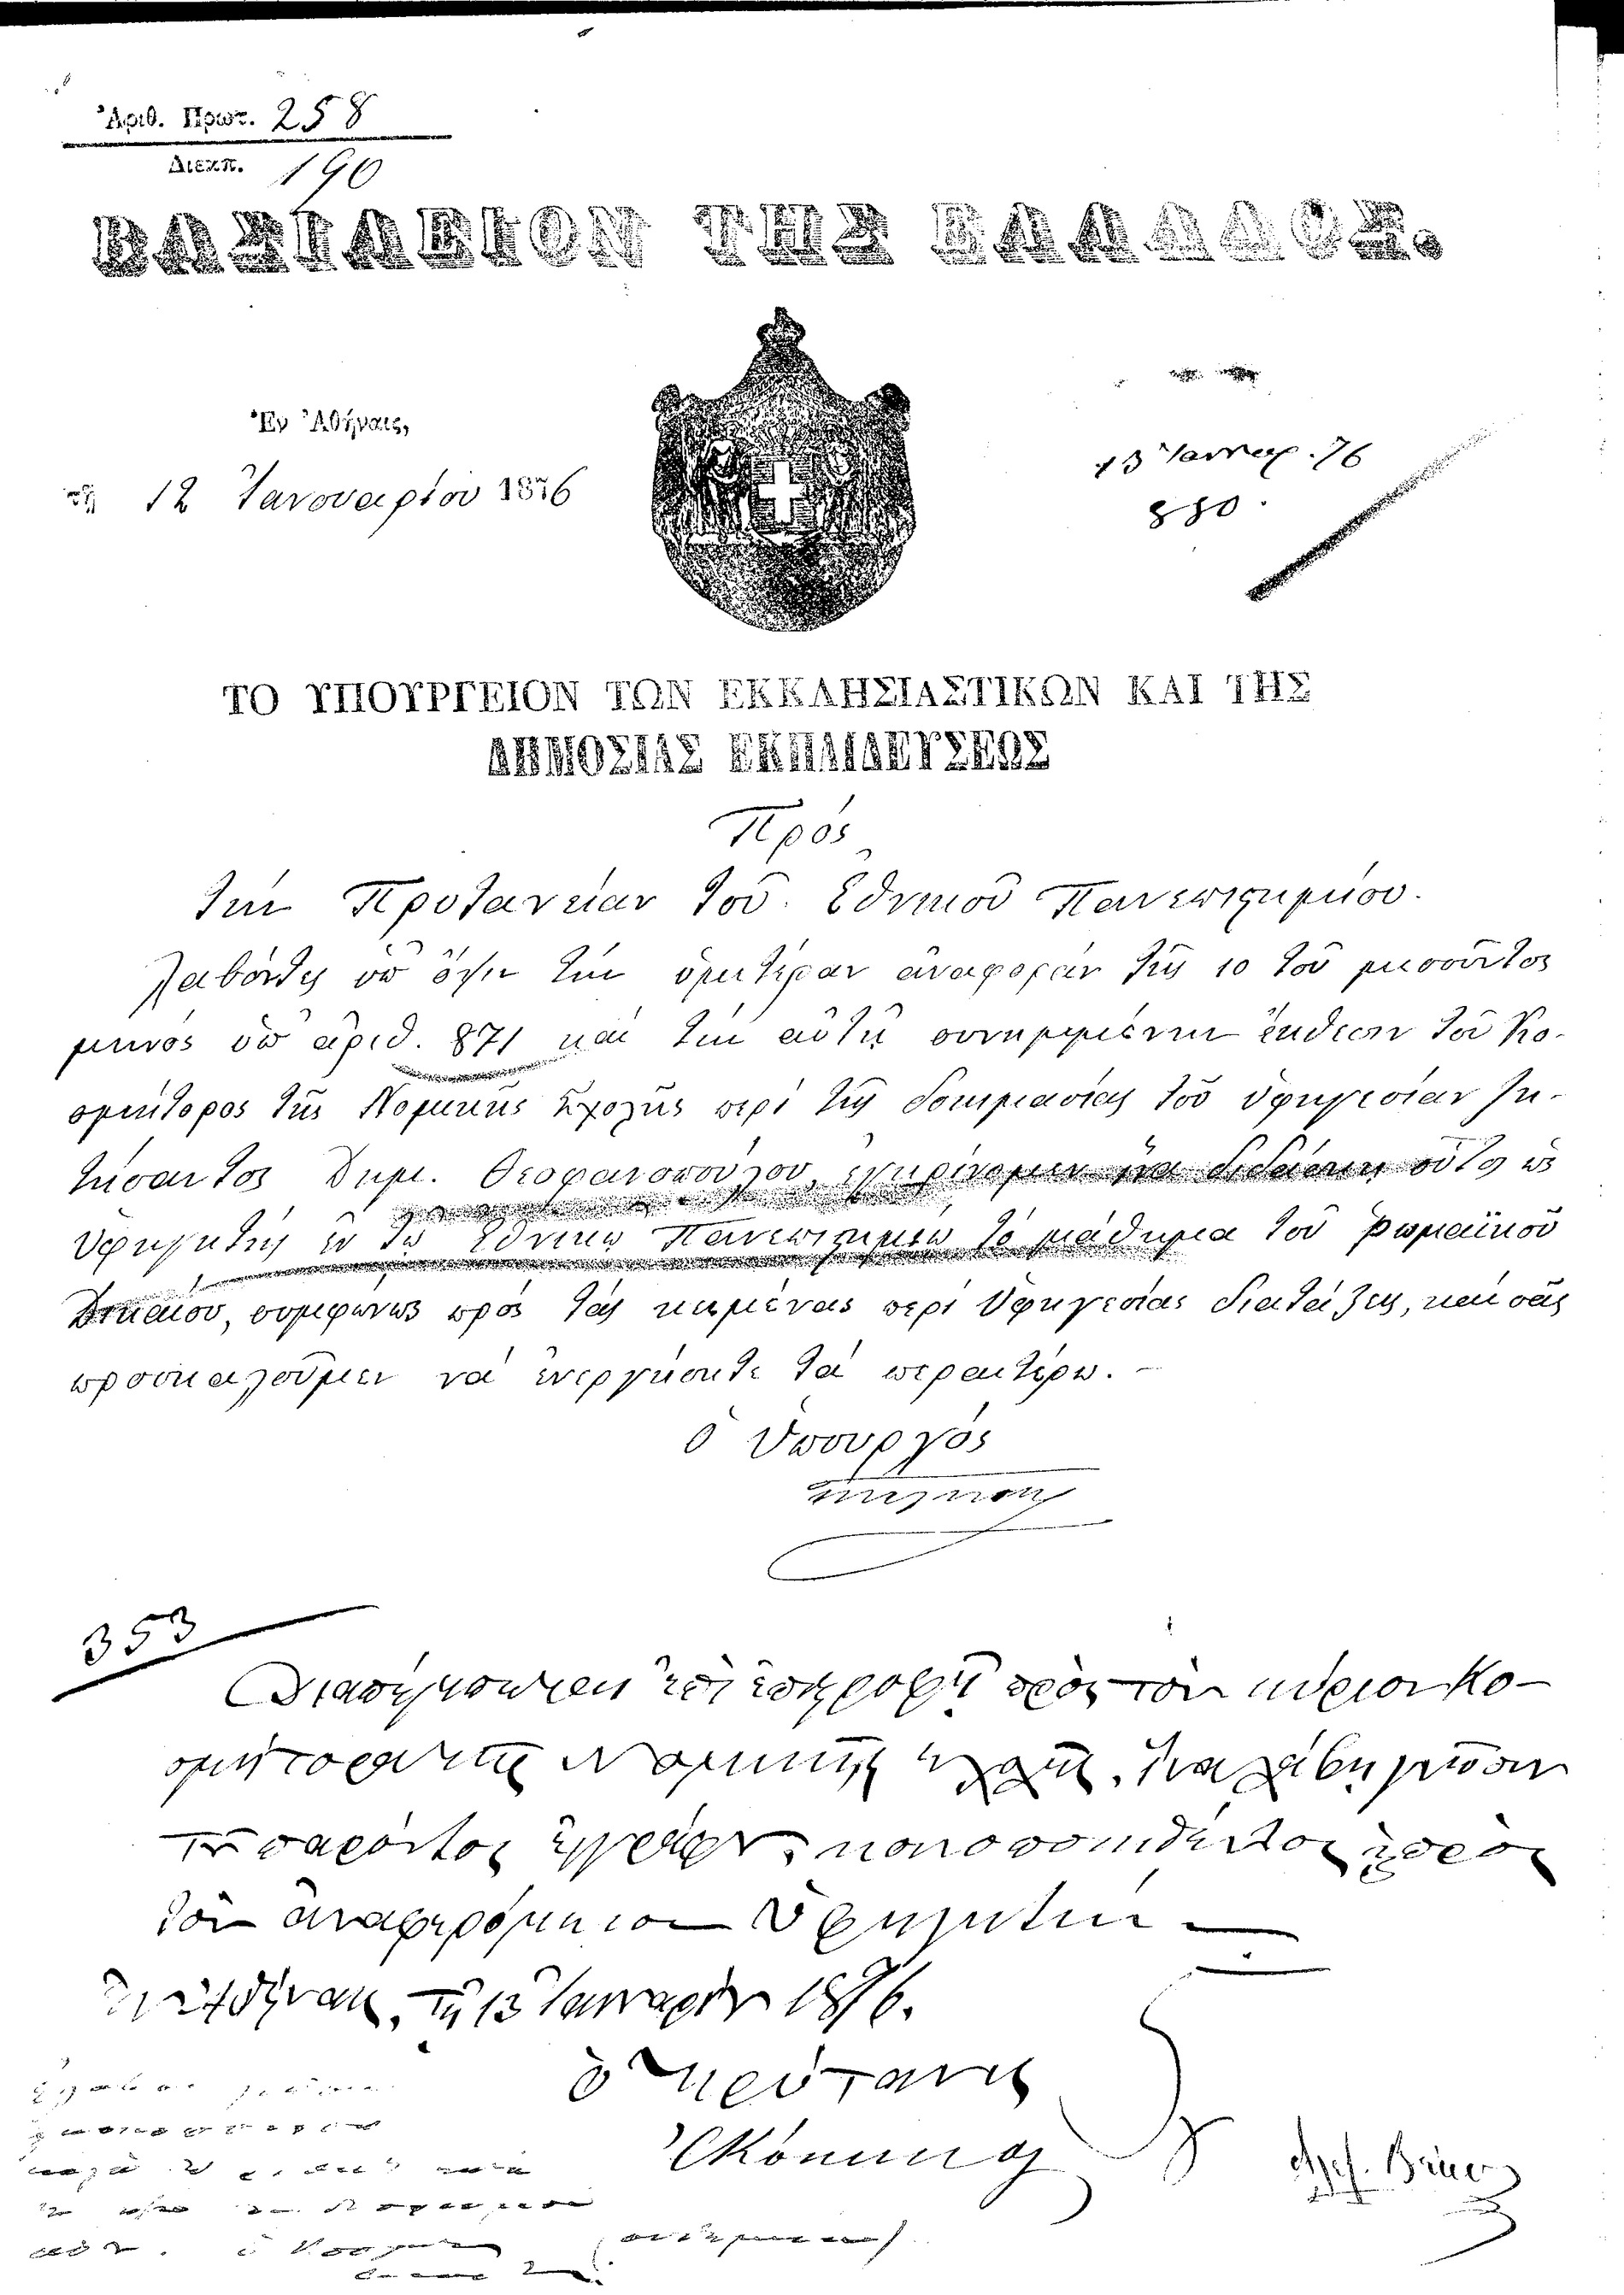 Ἀριθ. Πρωτ. 258
Διεκπ. 190
ΒΑΣΙΛΕΙΟΝ ΤΗΣ ΕΛΛΑΔΟΣ.
Ἐν Ἀθήναις,
τῇ 12 Ἰανουαρίου 1876
13 Ἰανουαρ. 76
880.
ΤΟ ΥΠΟΥΡΓΕΙΟΝ ΤΩΝ ΕΚΚΛΗΣΙΑΣΤΙΚΩΝ ΚΑΙ ΤΗΣ
ΔΗΜΟΣΙΑΣ ΕΚΠΑΙΔΕΥΣΕΩΣ
Πρός
τὴν Πρυτανείαν τοῦ Ἐθνικοῦ Πανεπιστημίου.
Λαβόντες ὑπ' ὄψιν τὴν ὑμετέραν ἀναφορὰν τῆς 10 τοῦ μεσοῦντος
μηνὸς ὑπ' ἀριθ. 871 καὶ τὴν αὐτῇ συνημμένην ἔκθεσιν τοῦ Κο-
σμήτορος τῆς Νομικῆς Σχολῆς περὶ τῆς δοκιμασίας τοῦ ὑφηγεσίαν ζη-
τήσαντος Δημ. Θεοφανοπούλου, ἐγκρίνομεν ἵνα διδάσκῃ οὗτος ὡς
Ὑφηγητὴς ἐν τῷ Ἐθνικῷ Πανεπιστημίῳ τὸ μάθημα τοῦ Ῥωμαϊκοῦ
Δικαίου, συμφώνως πρὸς τὰς κειμένας περὶ Ὑφηγεσίας διατάξεις, καὶ σᾶς
προσκαλοῦμεν νὰ ἐνεργήσητε τὰ περαιτέρω. –
Ὁ Ὑπουργός
353
ἐπιστροφῇ πρὸς τὸν κύριον Κο-
σμήτορα τῆς Νομικῆς Σχολῆς, ἵνα λάβῃ γνῶσιν
τοῦ παρόντος ἐγγράφου, κοινοποιηθέντος πρὸς
τὸν ἀναφερόμενον Ὑφηγητήν.
Ἐν Ἀθήναις, τῇ 13 Ἰανουαρίου 1876.
Ὁ Πρύτανις